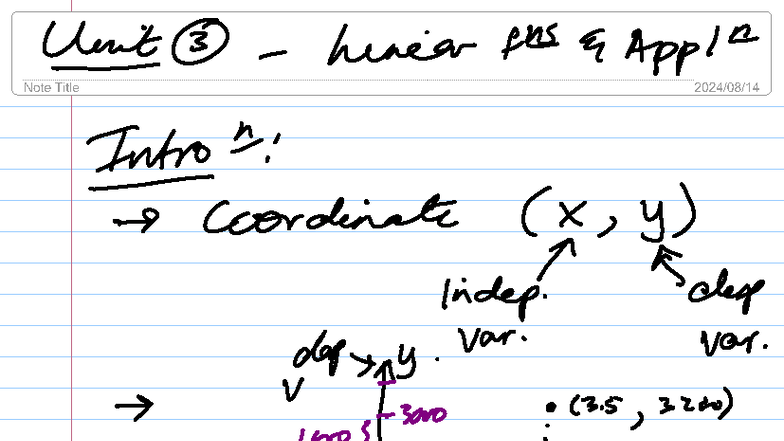 Unit ③ - Linear fns & Appln
Note Title 2024/08/14
Intron:
→ Coordinate (x, y)
Indep. var. dep var.
dep v → y
→ 3000 • (3.5, 3200)